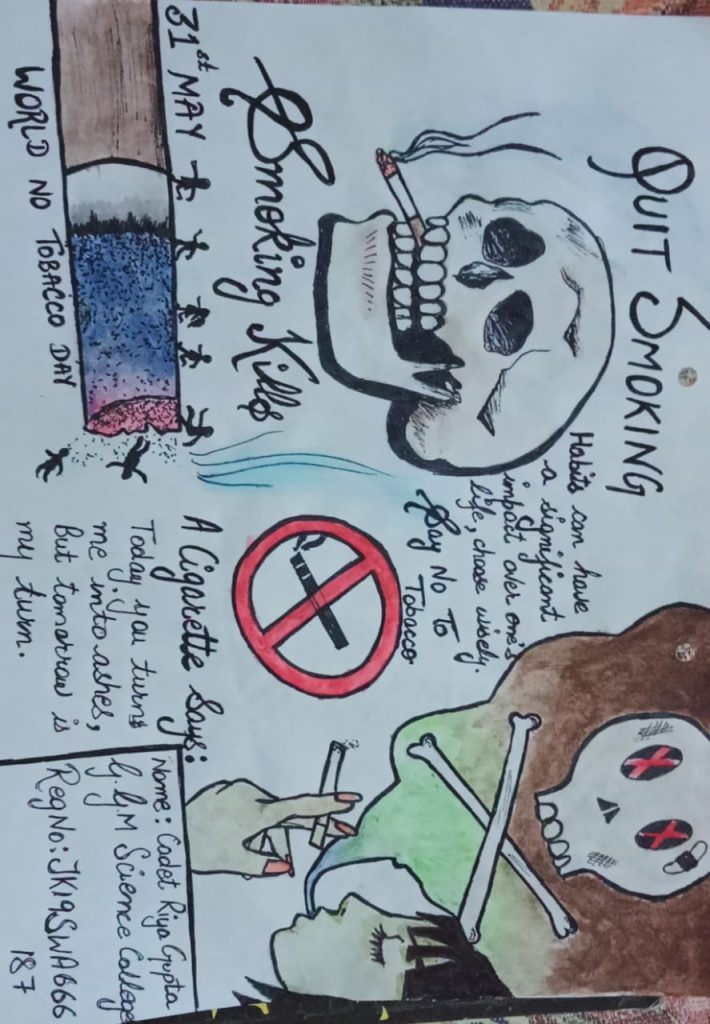 QUIT SMOKING
Habits can have
a significant
impact over one's
life, choose wisely.
Say No To
Tobacco
Smoking Kills
31st MAY
WORLD NO TOBACCO DAY
A Cigarette Says:
Today you turns
me into ashes,
but tomorrow is
my turn.
Name: Cadet Riya Gupta
G.G.M Science College
Reg No: JK19SWA666
187